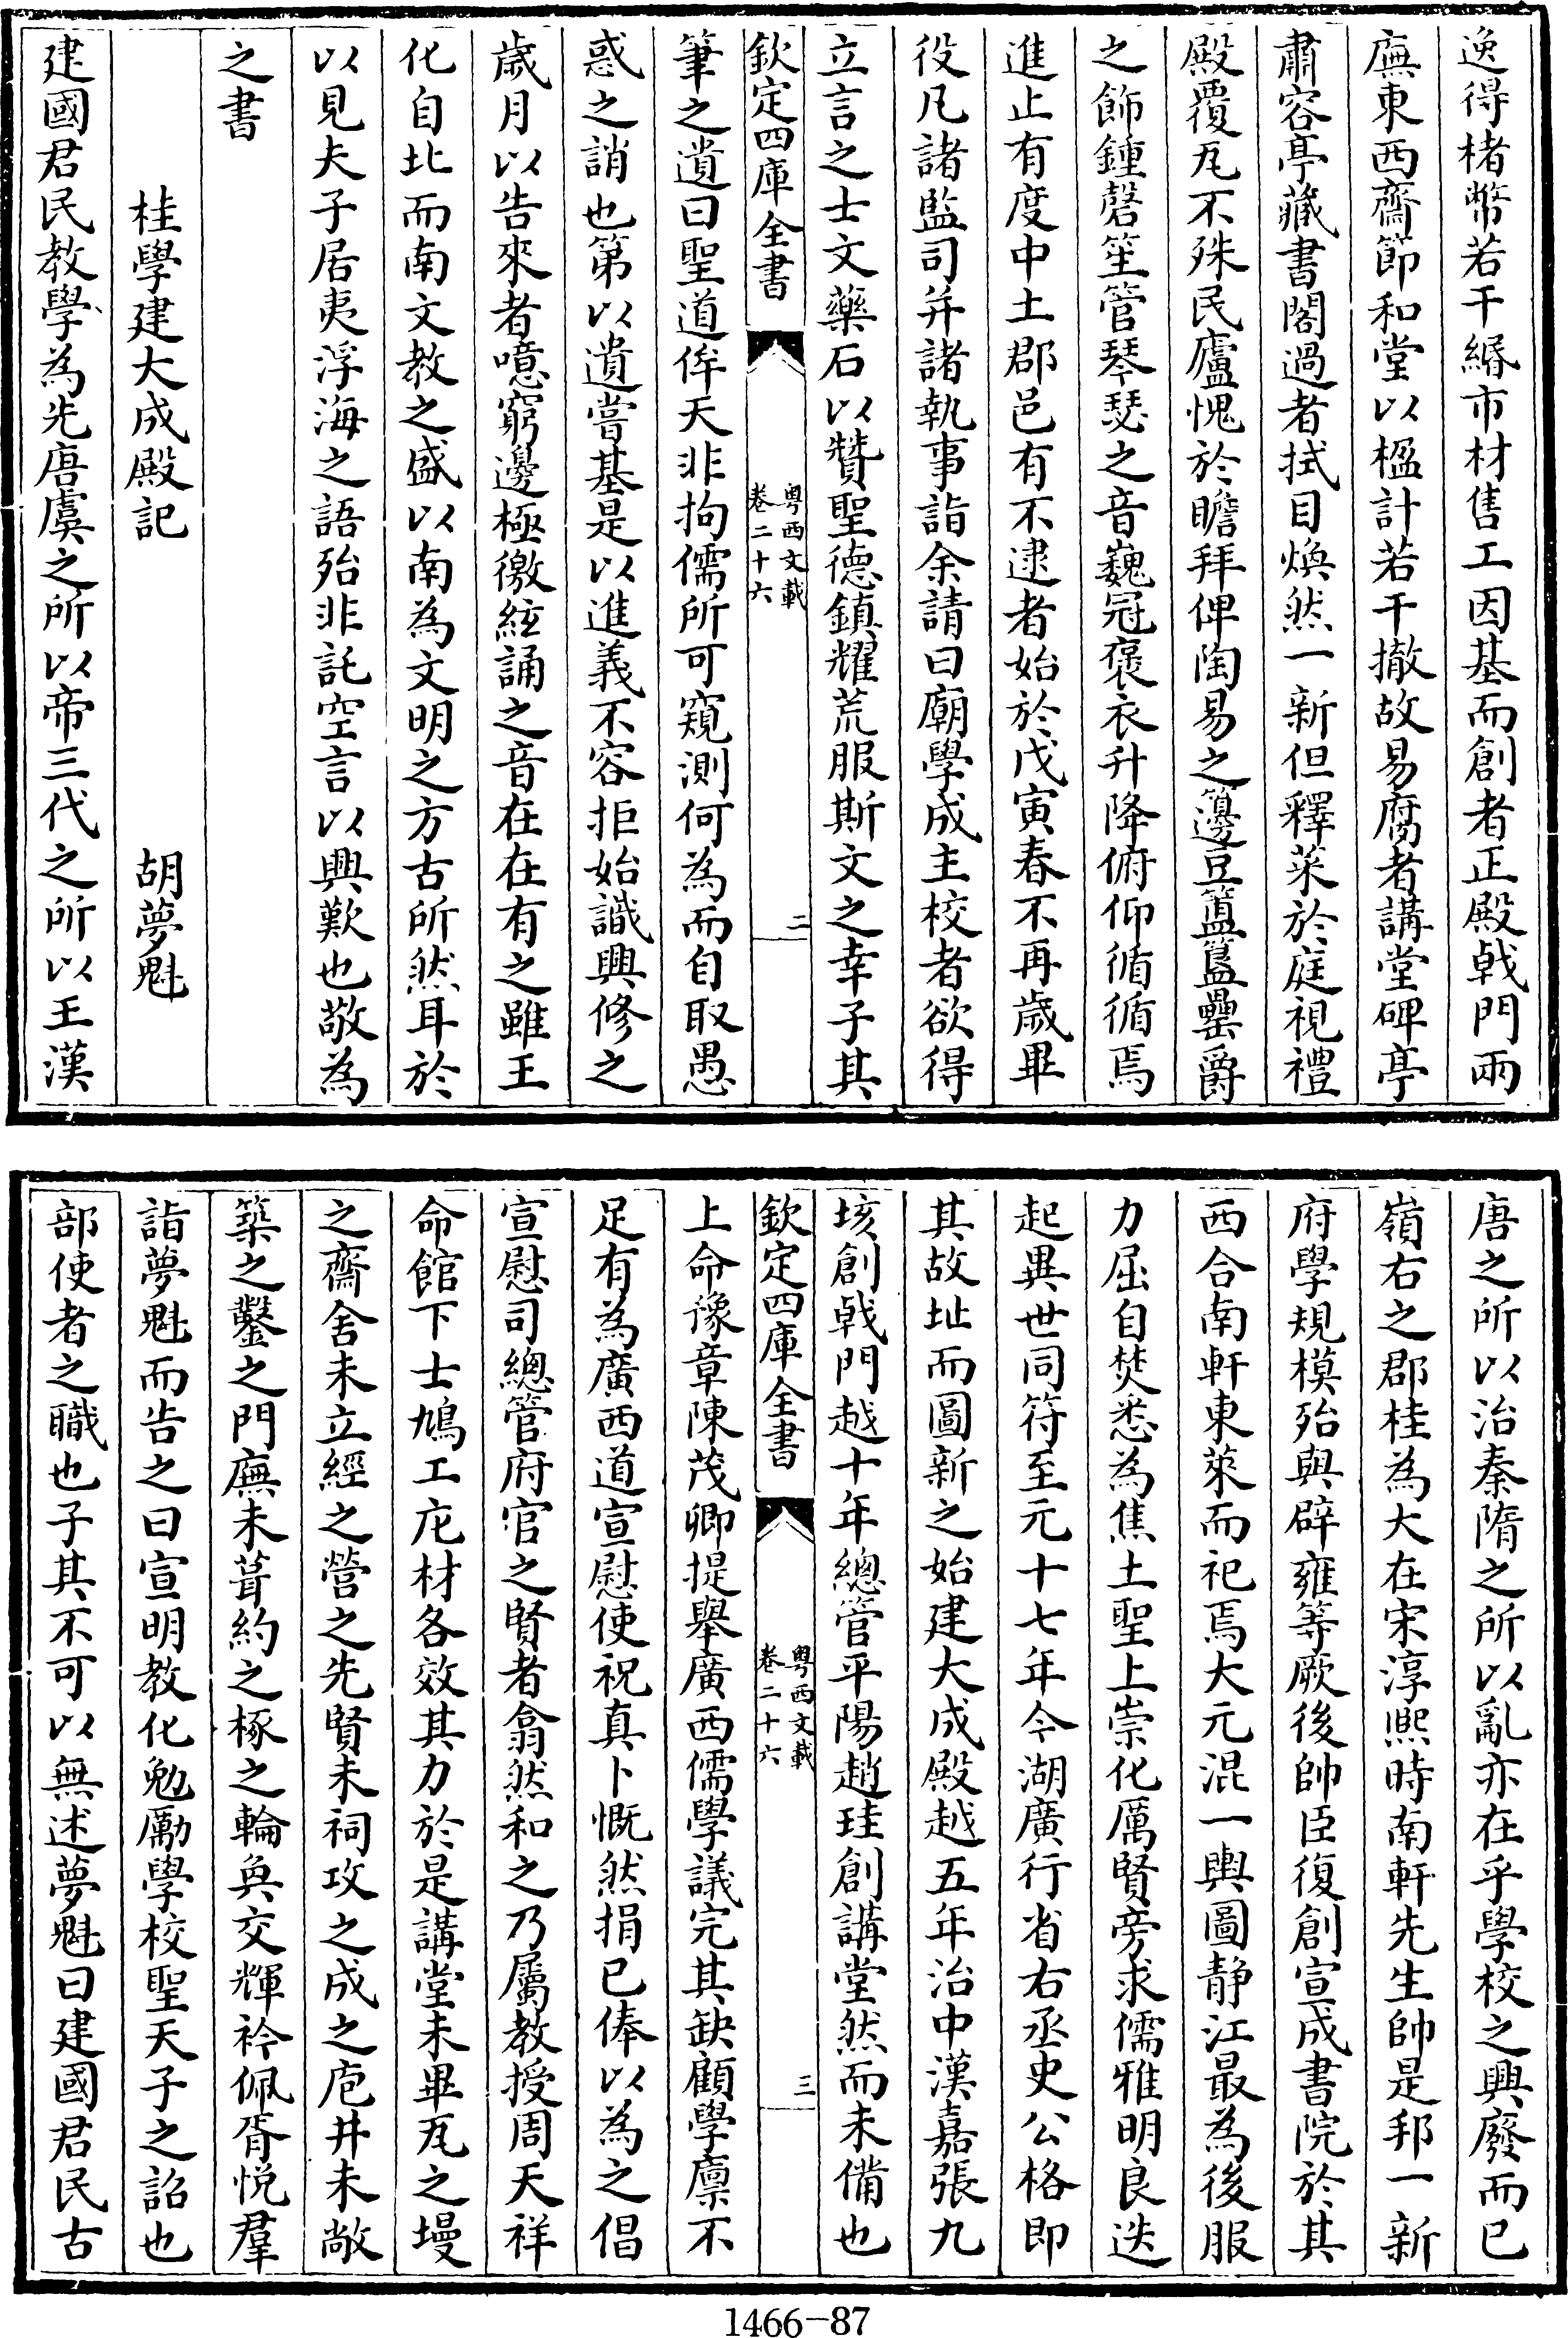 逸得楮幣若干緡市材售工因基而創者正殿㦸門兩
廡東西齋節和堂以楹計若干撤故易腐者講堂碑亭
肅容亭藏書閣過者拭目煥然一新但釋菜於庭視禮
殿覆瓦不殊民廬愧於瞻拜俾陶易之籩豆簠簋罍爵
之飾鍾磬笙管琴瑟之音巍冠褒衣升降俯仰循循焉
進止有度中土郡邑有不逮者始於戊寅春不再歲畢
役凡諸監司并諸執事詣余請曰廟學成主校者欲得
立言之士文藥石以贊聖德鎮耀荒服斯文之幸子其
欽定四庫全書
粤西文載
卷二十六
二
筆之遺曰聖道侔天非拘儒所可窺測何為而自取愚
惑之誚也第以遺嘗基是以進義不容拒始識興修之
歲月以告來者噫窮邊極徼絃誦之音在在有之雖王
化自北而南文教之盛以南為文明之方古所然耳於
以見夫子居夷浮海之語殆非託空言以興歎也敬為
之書
桂學建大成殿記
胡夢魁
建國君民教學為先唐虞之所以帝三代之所以王漢
唐之所以治秦隋之所以亂亦在乎學校之興廢而已
嶺右之郡桂為大在宋淳熙時南軒先生帥是邦一新
府學規模殆與辟雍等厥後帥臣復創宣成書院於其
西合南軒東萊而祀焉大元混一輿圖静江最為後服
力屈自焚悉為焦土聖上崇化厲賢旁求儒雅明良迭
起異世同符至元十七年今湖廣行省右丞史公格即
其故址而圖新之始建大成殿越五年治中漢嘉張九
垓創㦸門越十年總管平陽趙珪創講堂然而未備也
欽定四庫全書
粤西文載
卷二十六
三
上命豫章陳茂卿提舉廣西儒學議完其缺顧學廪不
足有為廣西道宣慰使祝真卜慨然捐已俸以為之倡
宣慰司總管府官之賢者翕然和之乃屬教授周天祥
命館下士鳩工庀材各效其力於是講堂未畢瓦之墁
之齋舍未立經之營之先賢未祠攻之成之庖井未敞
築之鑿之門廡未葺約之椓之輪奐交輝衿佩胥悦羣
詣夢魁而告之曰宣明教化勉勵學校聖天子之詔也
部使者之職也子其不可以無述夢魁曰建國君民古
1466-87